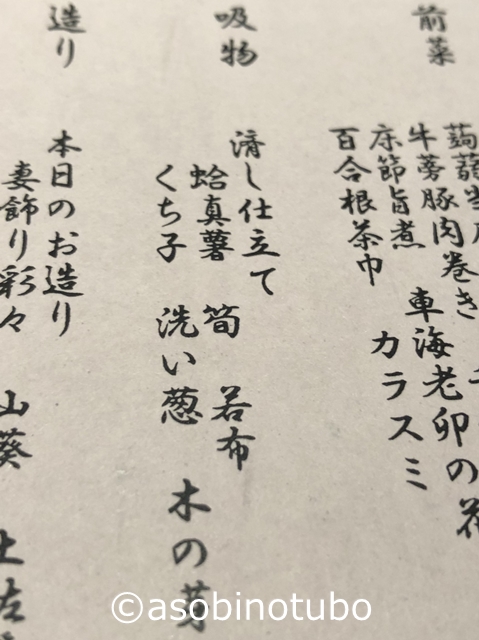 前菜
蒟蒻
牛蒡豚肉巻き
床節旨煮 車海老卯の花
百合根茶巾 カラスミ
吸物
清し仕立て
蛤真薯 筍 若布
くち子 洗い葱 木の芽
造り
本日のお造り
妻飾り彩々 山葵 土佐
©asobinotubo